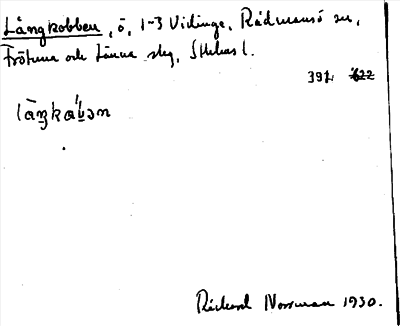 Långkobben, ö, 1-3 Vidinge, Rådmansö sn,
Frötuna och Länna skg, Sthlms l.
392 622
Rickard Norrman 1930.